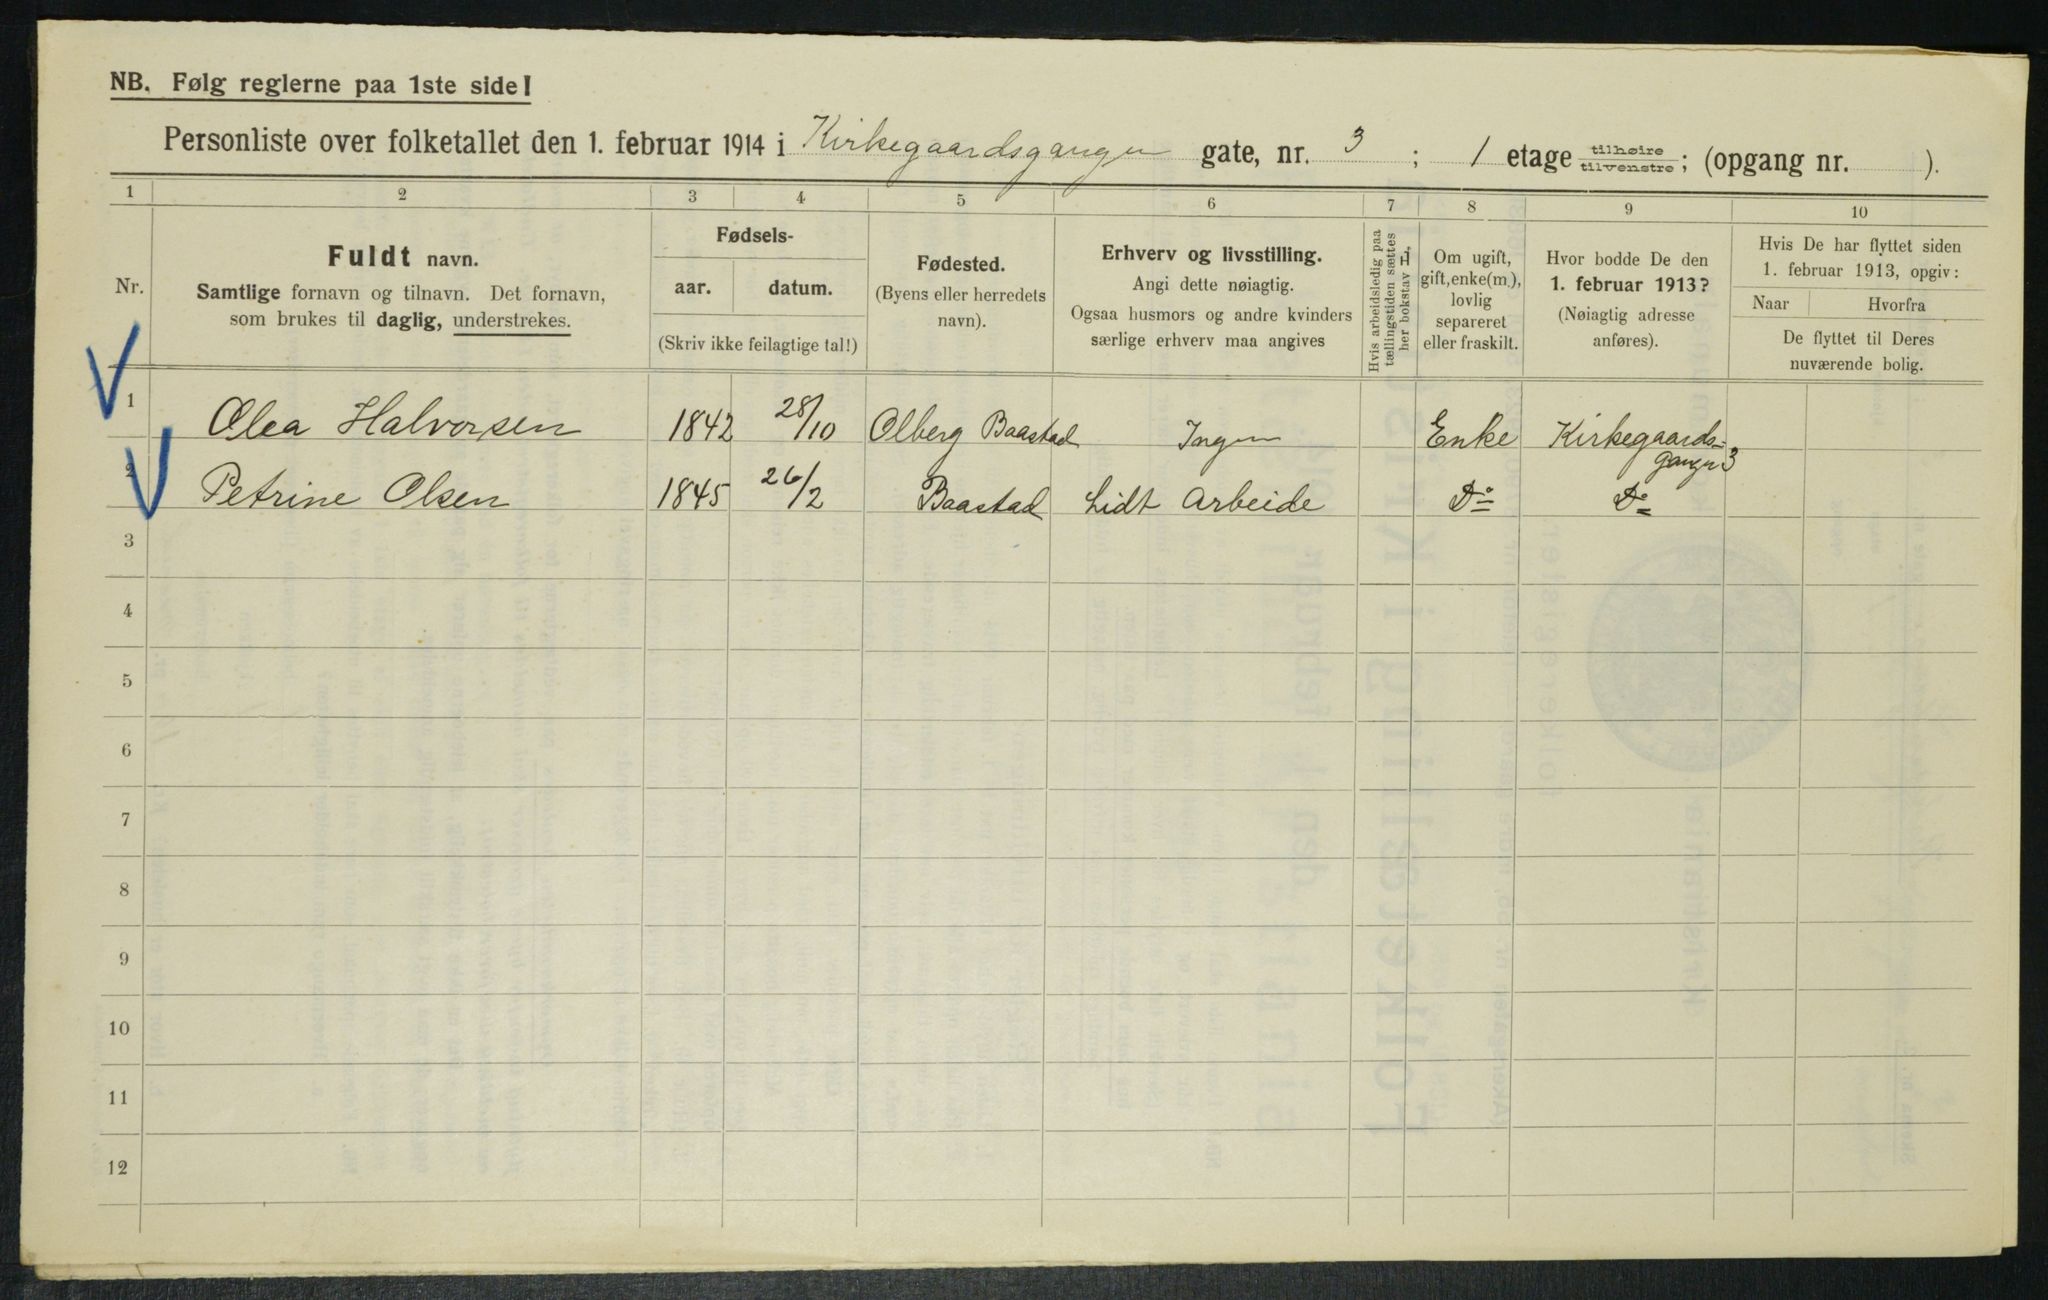 NB. Følg reglerne paa 1ste side!
Personliste over folketallet den 1. februar 1914 i Kirkegaardsgangen gate, nr. 3 ; 1 etage tilhøire tilvenstre; (opgang nr. ).
1 2 3 4 5 6 7 8 9 10
Nr.
Fuldt navn.
Samtlige fornavn og tilnavn. Det fornavn,
som brukes til daglig, understrekes.
Fødsels-
aar. datum.
(Skriv ikke feilagtige tal!)
Fødested.
(Byens eller herredets
navn).
Erhverv og livsstilling.
Angi dette nøiagtig.
Ogsaa husmors og andre kvinders
særlige erhverv maa angives
Hvis arbeidsledig paa
tællingstiden sættes
her bokstav L.
Om ugift,
gift, enke(m.),
lovlig
separeret
eller fraskilt.
Hvor bodde De den
1. februar 1913?
(Nøiagtig adresse
anføres).
Hvis De har flyttet siden
1. februar 1913, opgiv:
Naar Hvorfra
De flyttet til Deres
nuværende bolig.
1 Olea Halvorsen 1842 28/10 Olberg Baastad Ingen Enke Kirkegaards-
gangen 3
2 Petrine Olsen 1845 26/2 Baastad Lidt Arbeide Do Do
3
4
5
6
7
8
9
10
11
12